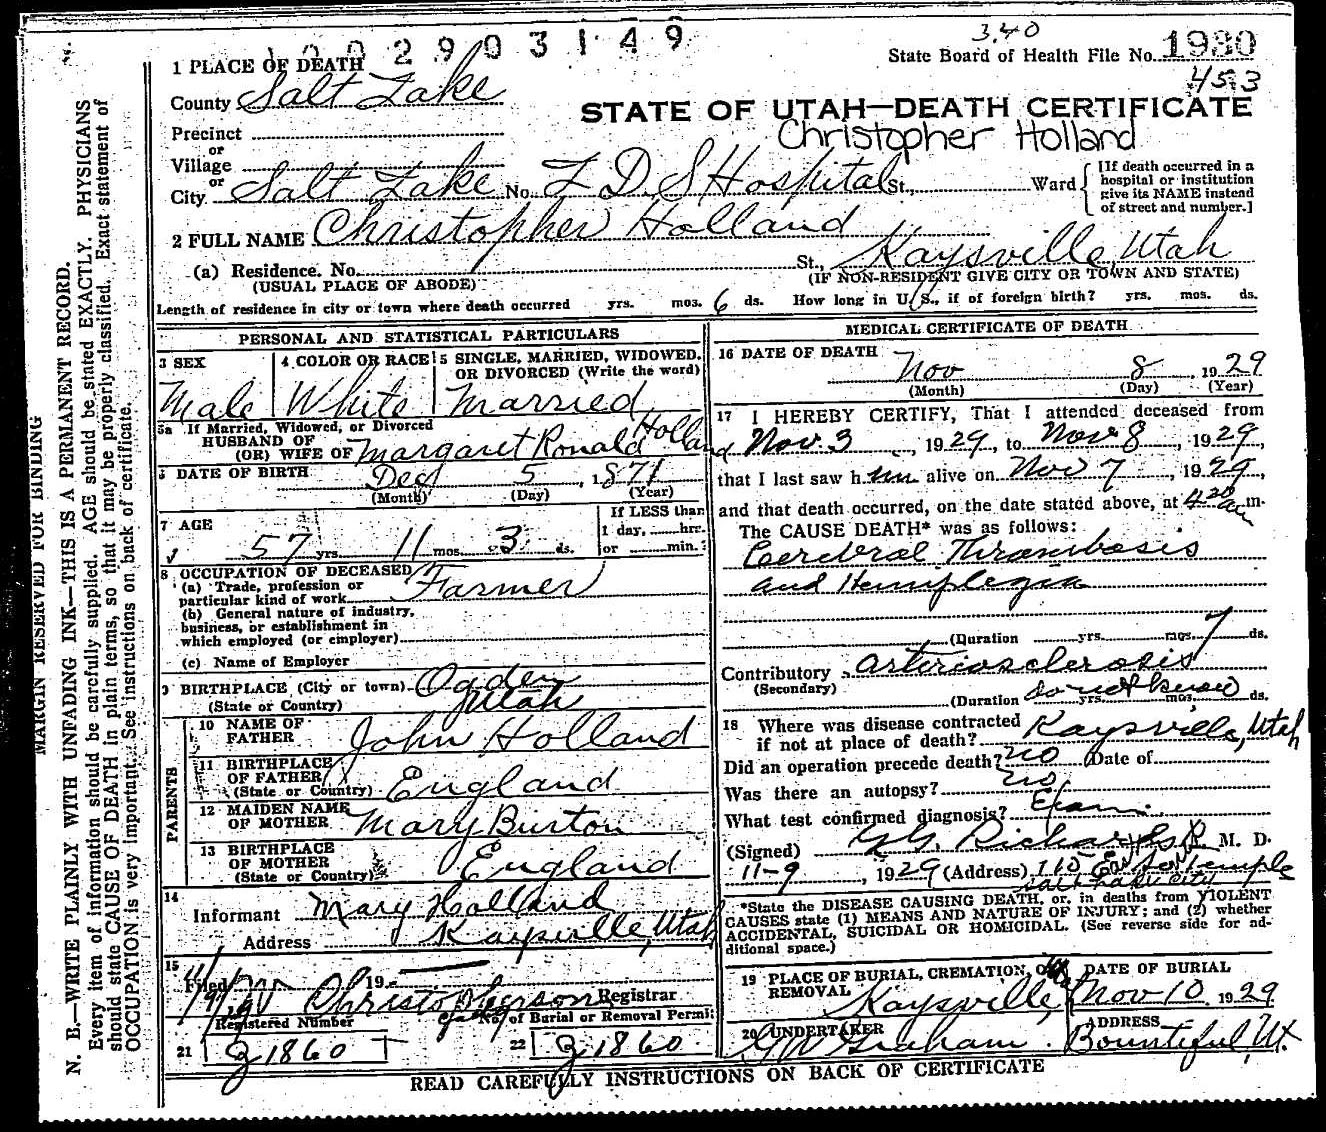 1002903149
340
State Board of Health File No. 1930
453
1 PLACE OF DEATH
County Salt Lake
STATE OF UTAH—DEATH CERTIFICATE
Christopher Holland
Precinct
or
Village
or
City Salt Lake No. L D S Hospital St., Ward
[If death occurred in a
hospital or institution
give its NAME instead
of street and number.]
2 FULL NAME Christopher Holland
(a) Residence. No. St., Kaysville, Utah
(USUAL PLACE OF ABODE) (IF NON-RESIDENT GIVE CITY OR TOWN AND STATE)
Length of residence in city or town where death occurred yrs. mos. 6 ds. How long in U. S., if of foreign birth? yrs. mos. ds.
PERSONAL AND STATISTICAL PARTICULARS
3 SEX
Male
4 COLOR OR RACE
White
5 SINGLE, MARRIED, WIDOWED,
OR DIVORCED (Write the word)
Married
5a If Married, Widowed, or Divorced
HUSBAND OF
(OR) WIFE OF Margaret Ronald Holland
6 DATE OF BIRTH Dec 5, 1871
(Month) (Day) (Year)
7 AGE
57 yrs 11 mos 3 ds.
If LESS than
1 day, hrs.
or min.
8 OCCUPATION OF DECEASED
(a) Trade, profession or
particular kind of work Farmer
(b) General nature of industry,
business, or establishment in
which employed (or employer)
(c) Name of Employer
9 BIRTHPLACE (City or town) Ogden
(State or Country) Utah
PARENTS
10 NAME OF
FATHER John Holland
11 BIRTHPLACE
OF FATHER
(State or Country) England
12 MAIDEN NAME
OF MOTHER Mary Burton
13 BIRTHPLACE
OF MOTHER
(State or Country) England
14
Informant Mary Holland
Address Kaysville, Utah
15
Filed 11/9/29 19 Christopherson Registrar
Registered Number No. of Burial or Removal Permit
21 1860 22 1860
MEDICAL CERTIFICATE OF DEATH
16 DATE OF DEATH
Nov 8, 1929
(Month) (Day) (Year)
17 I HEREBY CERTIFY, That I attended deceased from
Nov. 3, 1929, to Nov 8, 1929,
that I last saw him alive on Nov 7, 1929,
and that death occurred, on the date stated above, at 4 20 a m.
The CAUSE DEATH* was as follows:
Cerebral Thrombosis
and Hemiplegia
(Duration yrs. mos. 7 ds.
Contributory arteriosclerosis
(Secondary)
(Duration do not know yrs. mos. ds.
18 Where was disease contracted
if not at place of death? Kaysville, Utah
Did an operation precede death? no Date of
Was there an autopsy? no
What test confirmed diagnosis? Exam.
(Signed) G G Richards M. D.
11-9, 1929 (Address) 115 East So Temple
Salt Lake City
*State the DISEASE CAUSING DEATH, or, in deaths from VIOLENT
CAUSES state (1) MEANS AND NATURE OF INJURY; and (2) whether
ACCIDENTAL, SUICIDAL OR HOMICIDAL. (See reverse side for ad-
ditional space.)
19 PLACE OF BURIAL, CREMATION, OR
REMOVAL Kaysville,
DATE OF BURIAL
Nov 10 1929
20 UNDERTAKER
G W Graham.
ADDRESS
Bountiful, Ut.
READ CAREFULLY INSTRUCTIONS ON BACK OF CERTIFICATE
MARGIN RESERVED FOR BINDING
N. B.—WRITE PLAINLY WITH UNFADING INK—THIS IS A PERMANENT RECORD.
Every item of information should be carefully supplied. AGE should be stated EXACTLY. PHYSICIANS
should state CAUSE OF DEATH in plain terms, so that it may be properly classified. Exact statement of
OCCUPATION is very important. See instructions on back of certificate.